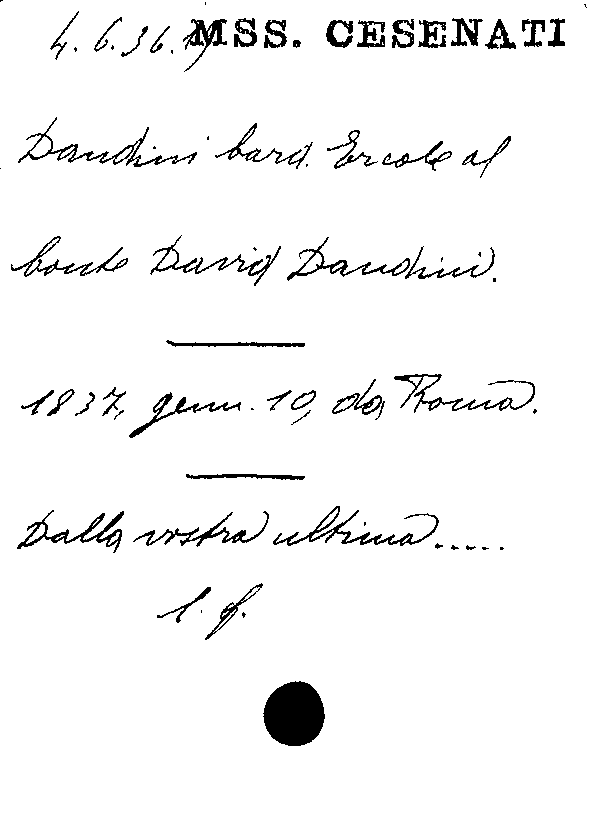 4. 6. 36. 19 MSS. CESENATI
Dandini card. Ercole al
conte David Dandini.
1837, genn. 10, da Roma.
Dalla vostra ultima.....
1. f.